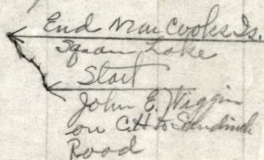 End near Cooks Is.
Squam Lake
Start
John E. Wiggin
on C.H. to Sandwich
Road